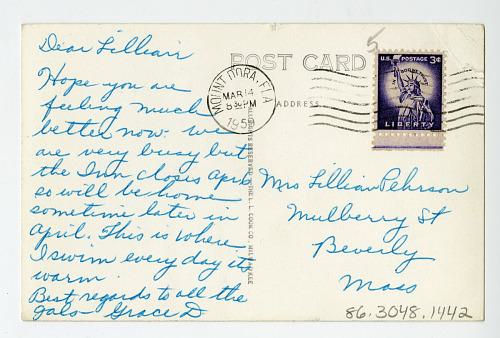 Dear Lillian
Hope you are
feeling much
better now. We
are very busy but
the Inn closes April
so will be home
sometime later in
April. This is where
I swim every day it's
warm.
Best regards to all the
gals - Grace D
POST CARD
ADDRESS
MOUNT DORA, FLA.
MAR 14
8 30 PM
1959
5
U.S. POSTAGE 3¢
IN GOD WE TRUST
LIBERTY
Mrs Lillian Pehrson
Mulberry St
Beverly
Mass
86.3048.1442